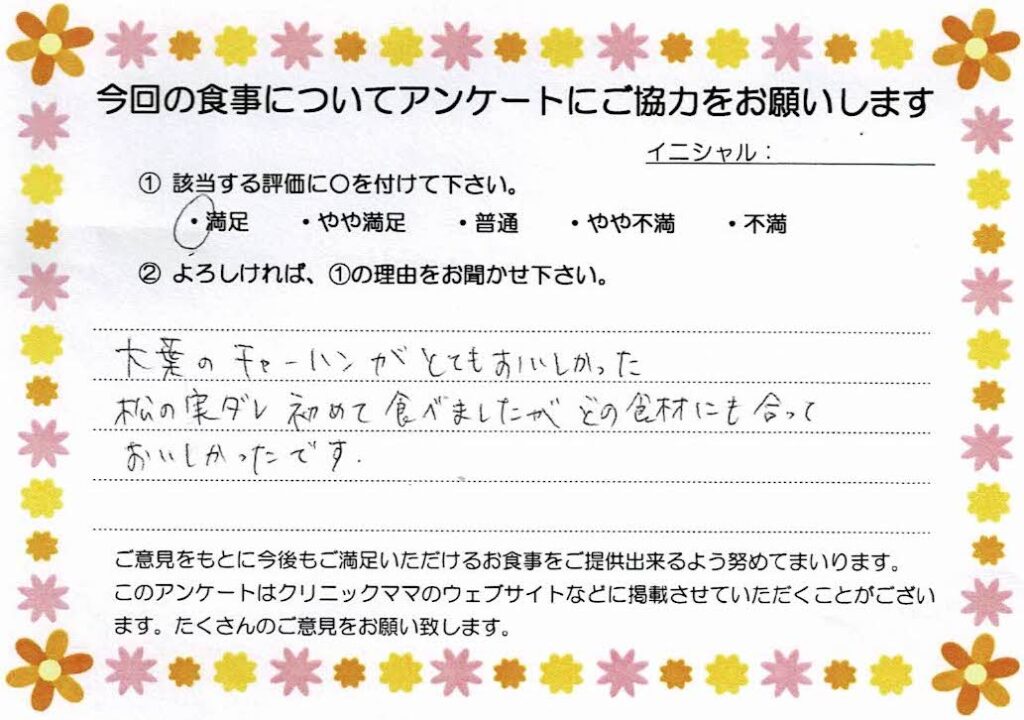 今回の食事についてアンケートにご協力をお願いします
イニシャル：
① 該当する評価に〇を付けて下さい。
・満足 ・やや満足 ・普通 ・やや不満 ・不満
② よろしければ、①の理由をお聞かせ下さい。
大葉のチャーハンがとてもおいしかった
松の実ダレ 初めて食べましたが どの食材にも合って
おいしかったです.
ご意見をもとに今後もご満足いただけるお食事をご提供出来るよう努めてまいります。
このアンケートはクリニックママのウェブサイトなどに掲載させていただくことがござい
ます。たくさんのご意見をお願い致します。